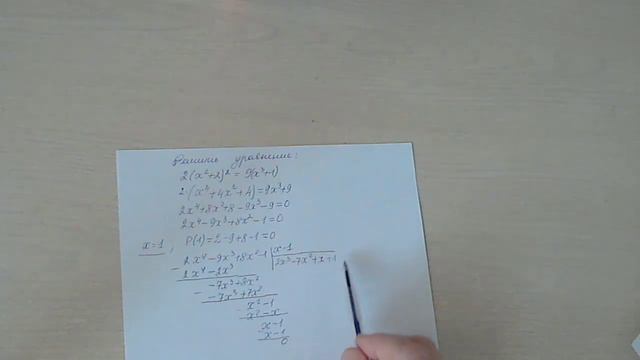 Решить уравнение:
2(x²+2)² = 9(x³+1)
2·(x⁴+4x²+4)=9x³+9
2x⁴+8x²+8-9x³-9=0
2x⁴-9x³+8x²-1=0
x=1, P(1)=2-9+8-1=0
2x⁴-9x³+8x²-1 | x-1
- 2x⁴-2x³ 2x³-7x²+x+1
-7x³+8x²
- -7x³+7x²
x²-1
- x²-x
x-1
x-1
0